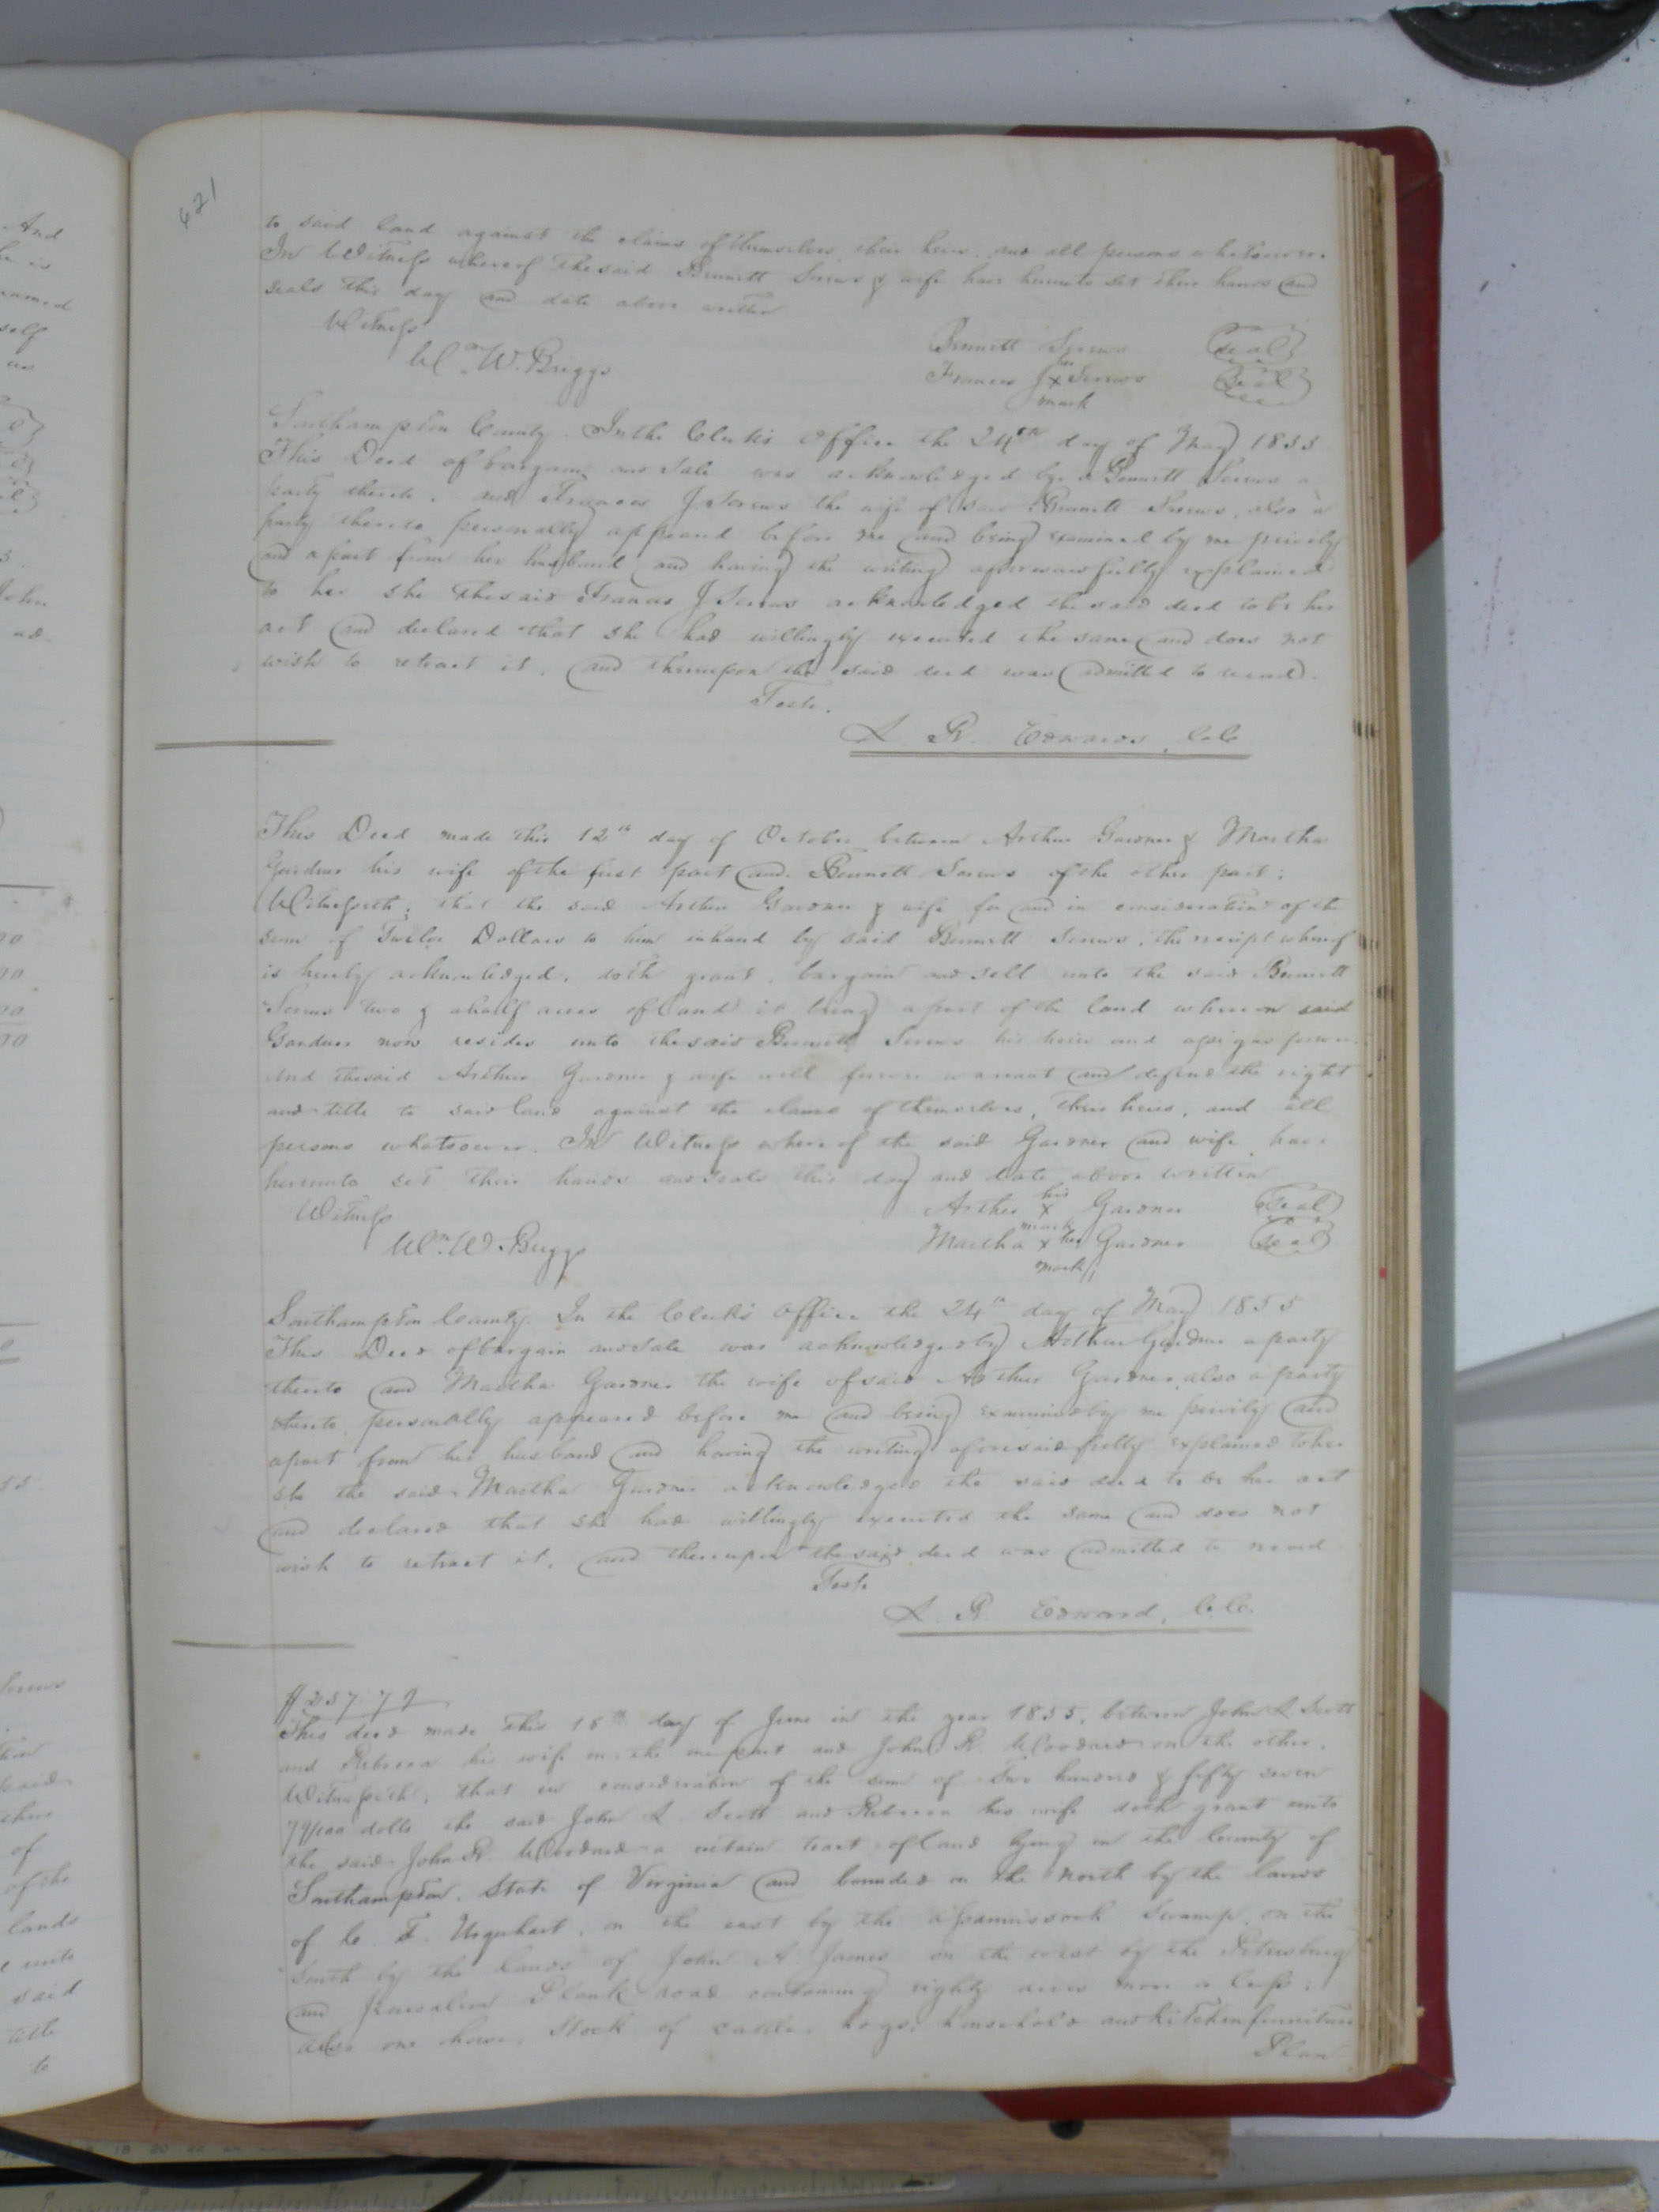 621
to said land against the claims of themselves, their heirs, and all persons whatsoever.
In Witness whereof the said Bennett Screws & wife have hereunto set their hands and
seals this day and date above written
Witness
Wm. W. Briggs
Bennett Screws (Seal)
Frances J x Screws (Seal)
her
mark
Southampton County. In the Clerks Office the 24th day of May 1855
This Deed of bargain and Sale was acknowledged by Bennett Screws a
party thereto. and Frances J Screws the wife of said Bennett Screws, also a
party thereto personally appeared before me and being examined by me privily
and apart from her husband and having the writing aforesaid fully explained
to her she the said Frances J Screws acknowledged the said deed to be her
act and declared that she had willingly executed the same and does not
wish to retract it. and thereupon the said deed was admitted to record.
Teste.
L. R. Edwards, C.C.
This Deed made this 12th day of October between Arthur Gardner & Martha
Gardner his wife of the first part and Bennett Screws of the other part;
Witnesseth; that the said Arthur Gardner & wife for and in consideration of the
sum of Twelve Dollars to him in hand by said Bennett Screws, the receipt whereof
is hereby acknowledged. doth grant, bargain and sell unto the said Bennett
Screws two & a half acres of land it being a part of the land whereon said
Gardner now resides unto the said Bennett Screws his heirs and assigns forever.
And the said Arthur Gardner & wife will forever warrant and defend the right
and title to said land against the claims of themselves, their heirs, and all
persons whatsoever. In Witness whereof the said Gardner and wife have
hereunto set their hands and seals this day and date above written
Witness
Wm. W. Briggs
his
Arthur x Gardner (Seal)
mark
Martha x her Gardner (Seal)
mark
Southampton County. In the Clerks Office the 24th day of May 1855
This Deed of bargain and Sale was acknowledged by Arthur Gardner a party
thereto and Martha Gardner the wife of said Arthur Gardner, also a party
thereto, personally appeared before me and being examined by me privily and
apart from her husband and having the writing aforesaid fully explained to her
she the said Martha Gardner acknowledged the said deed to be her act
and declared that she had willingly executed the same and does not
wish to retract it. and thereupon the said deed was admitted to record
Teste
L. R. Edward, C.C.
$257 79
This deed made this 18th day of June in the year 1855, between John L. Scott
and Rebecca his wife on the one part and John R. Woodard on the other.
Witnesseth, that in consideration of the sum of Two hundred & fifty seven
79/100 dolls the said John L. Scott and Rebecca his wife doth grant unto
the said John R. Woodard a certain tract of land lying in the County of
Southampton, State of Virginia and bounded on the north by the lands
of C. F. Urquhart, on the east by the Assamoosock Swamp, on the
South by the lands of John A. James on the west by the Petersburg
and Jerusalem Plank road containing eighty acres more or less;
also one horse, Stock of cattle, hogs, household and kitchen furniture
Plan